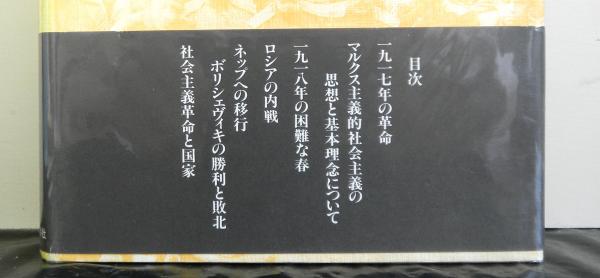 目次
一九一七年の革命
マルクス主義的社会主義の
思想と基本理念について
一九一八年の困難な春
ロシアの内戦
ネップへの移行
ボリシェヴィキの勝利と敗北
社会主義革命と国家
社